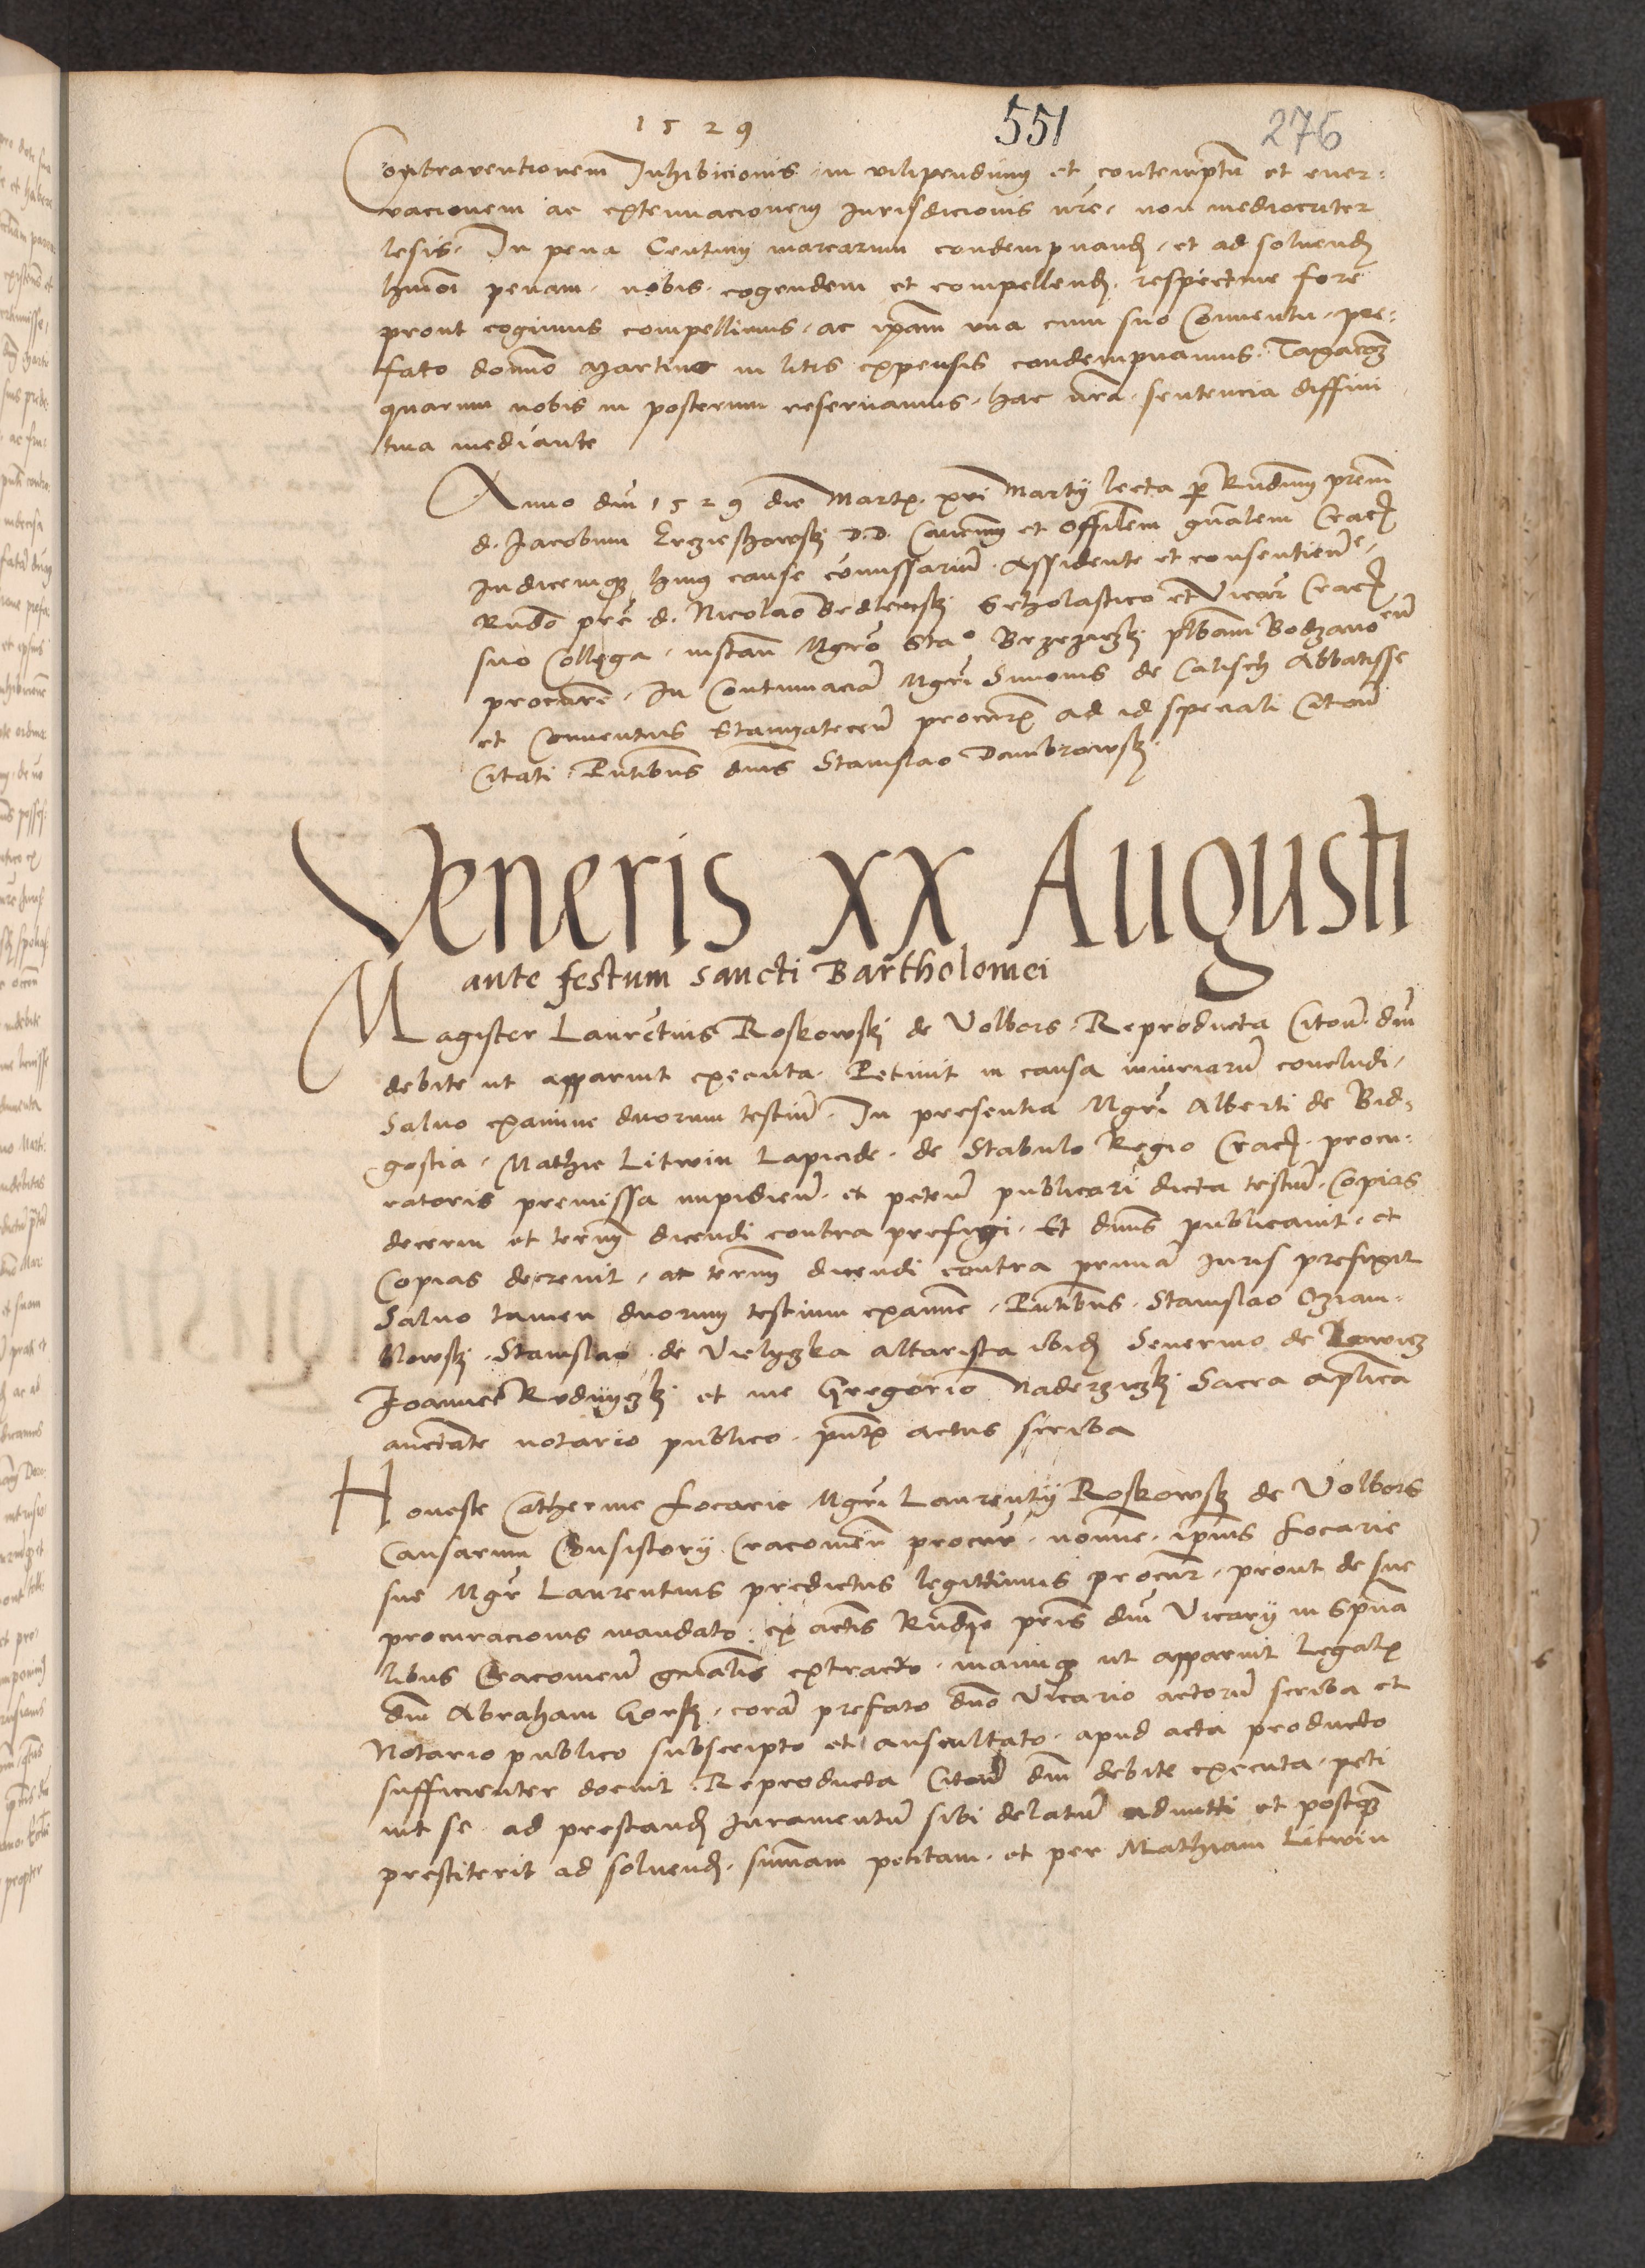 1529
551
276
Contraventionem Inhibicionis in vilipendium et contemptu et ener-
vacionem ac extenuacionem Iurisdicionis nre non mediocriter
lesis. In pena Centum marcarum condempnand et ad solvend
hmoi penam nobis cogendem et compellend respective fore
prout cogimus compellimus ac ipam una cum suo Conventu pre-
fato domno Martino in litis expensis condempnamus. Taxacoem
quarum nobis in posterum reservamus hac nra sentencia diffini
tiva mediante
Anno dni 1529 die Martis xvi Martij lecta per Rndum prem
d. Jacobum Erzieszowskj D.D. Canonicum et Offilem gnalem Crac
Iudicemque huius cause comissarium Assidente et consentiente
Rndo pre d. Nicolao Bedlenskj Scholastico et Vicar Crac
suo Collega, instan Mgro Sta° Brzeziczkj plbam Bodzanoen
procure. In Contumaciam Mgri Simonis de Calisch Abbatisse
et Conventus Staniateceñ procuris ad id speciali Citaoem
Citati. Pntibus dnis Stanislao Dambrowskj
Veneris xx Augusti
ante festum sancti Bartholomei
Magister Laurentius Roskowskj de Volbors Reproducta Citaoem dni
debite ut apparuit executa. Petivit in causa iniuriarum concludi,
Salvo examine duorum testium. In presentia Mgri Alberti de Bid-
gostia, Mathie Litwin Lapicide de Stabulo Regio Crac procu-
ratoris premissa impidien et peteñ publicari dicta testium. Copias
decerni et termum dicendi contra prefigi. Et dnus publicavit et
Copias decrevit, ac termum dicendi contra primam Iuris prefixit
Salvo tamen duorum testium examine, Pntibus Stanislao Czian-
Stanislao de Vielyczka altarista ibid Severino de Lowicz
Joanne Rudnyczkj et me Gregorio Naderziczkj Sacra aplica
auctate notario publico pntis actus scriba
Honeste Catherine focarie Mgri Laurentij Roskowskj de Volbors
Causarum Consistorij Cracovien procur nomine ipius focarie
sue Mgr Laurentius predictus legittimus procur, prout de sue
procuracionis mandato ex actis Rndi pris dni Vicarij in Spua
libus Cracovien gnalis extracto manuque ut apparuit legalis
dni Abraham Gorskj coram prefato dno Vicario actorum scriba et
Notario publico subscripto et auscultato apud acta producto
sufficienter docuit. Reproducta Citaoem dni debite executa peti
vit se ad prestand Iuramentum sibi delatum admitti et postquam
prestiterit ad solvend summam petitam et per Mathiam Litwin